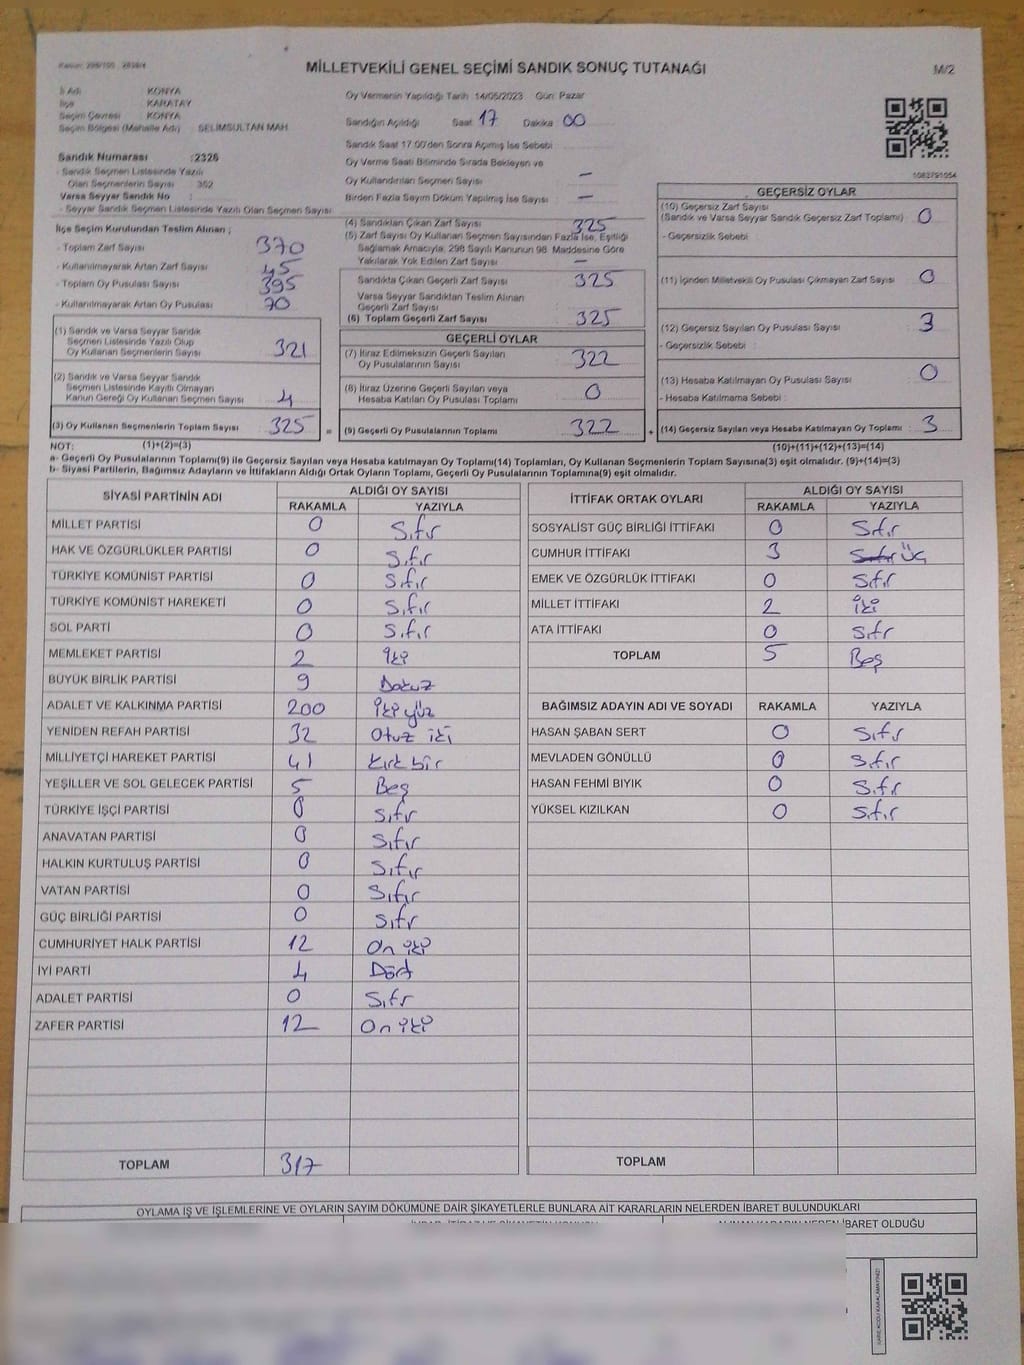 MİLLETVEKİLİ GENEL SEÇİMİ SANDIK SONUÇ TUTANAĞI
M/2
İl Adı KONYA
İlçe KARATAY
Seçim Çevresi KONYA
Seçim Bölgesi (Mahalle Adı) SELİMSULTAN MAH
Sandık Numarası :2326
- Sandık Seçmen Listesinde Yazılı
Olan Seçmenlerin Sayısı 352
Varsa Seyyar Sandık No :
- Seyyar Sandık Seçmen Listesinde Yazılı Olan Seçmen Sayısı :
Oy Vermenin Yapıldığı Tarih 14/05/2023 Gün: Pazar
Sandığın Açıldığı Saat 17 Dakika 00
Sandık Saat 17.00'den Sonra Açılmış İse Sebebi
Oy Verme Saati Bitiminde Sırada Bekleyen ve
Oy Kullandırılan Seçmen Sayısı —
Birden Fazla Sayım Döküm Yapılmış İse Sayısı —
1083791054
İlçe Seçim Kurulundan Teslim Alınan ;
- Toplam Zarf Sayısı 370
- Kullanılmayarak Artan Zarf Sayısı 45
- Toplam Oy Pusulası Sayısı 395
- Kullanılmayarak Artan Oy Pusulası 70
(1) Sandık ve Varsa Seyyar Sandık
Seçmen Listesinde Yazılı Olup
Oy Kullanan Seçmenlerin Sayısı 321
(2) Sandık ve Varsa Seyyar Sandık
Seçmen Listesinde Kayıtlı Olmayan
Kanun Gereği Oy Kullanan Seçmen Sayısı 4
(3) Oy Kullanan Seçmenlerin Toplam Sayısı 325 =
(4) Sandıktan Çıkan Zarf Sayısı 325
(5) Zarf Sayısı Oy Kullanan Seçmen Sayısından Fazla İse, Eşitliği
Sağlamak Amacıyla, 298 Sayılı Kanunun 98. Maddesine Göre
Yakılarak Yok Edilen Zarf Sayısı —
Sandıkta Çıkan Geçerli Zarf Sayısı 325
Varsa Seyyar Sandıktan Teslim Alınan
Geçerli Zarf Sayısı
(6) Toplam Geçerli Zarf Sayısı 325
GEÇERLİ OYLAR
(7) İtiraz Edilmeksizin Geçerli Sayılan
Oy Pusulalarının Sayısı 322
(8) İtiraz Üzerine Geçerli Sayılan veya
Hesaba Katılan Oy Pusulası Toplamı 0
(9) Geçerli Oy Pusulalarının Toplamı 322 +
GEÇERSİZ OYLAR
(10) Geçersiz Zarf Sayısı
(Sandık ve Varsa Seyyar Sandık Geçersiz Zarf Toplamı) 0
- Geçersizlik Sebebi
(11) İçinden Milletvekili Oy Pusulası Çıkmayan Zarf Sayısı 0
(12) Geçersiz Sayılan Oy Pusulası Sayısı 3
- Geçersizlik Sebebi
(13) Hesaba Katılmayan Oy Pusulası Sayısı 0
- Hesaba Katılmama Sebebi
(14) Geçersiz Sayılan veya Hesaba Katılmayan Oy Toplamı 3
NOT: (1)+(2)=(3) (10)+(11)+(12)+(13)=(14)
a- Geçerli Oy Pusulalarının Toplamı(9) ile Geçersiz Sayılan veya Hesaba katılmayan Oy Toplamı(14) Toplamları, Oy Kullanan Seçmenlerin Toplam Sayısına(3) eşit olmalıdır. (9)+(14)=(3)
b- Siyasi Partilerin, Bağımsız Adayların ve İttifakların Aldığı Ortak Oyların Toplamı, Geçerli Oy Pusulalarının Toplamına(9) eşit olmalıdır.
SİYASİ PARTİNİN ADI ALDIĞI OY SAYISI
RAKAMLA YAZIYLA
MİLLET PARTİSİ 0 Sıfır
HAK VE ÖZGÜRLÜKLER PARTİSİ 0 Sıfır
TÜRKİYE KOMÜNİST PARTİSİ 0 Sıfır
TÜRKİYE KOMÜNİST HAREKETİ 0 Sıfır
SOL PARTİ 0 Sıfır
MEMLEKET PARTİSİ 2 İki
BÜYÜK BİRLİK PARTİSİ 9 Dokuz
ADALET VE KALKINMA PARTİSİ 200 İki yüz
YENİDEN REFAH PARTİSİ 32 Otuz iki
MİLLİYETÇİ HAREKET PARTİSİ 41 kırk bir
YEŞİLLER VE SOL GELECEK PARTİSİ 5 Beş
TÜRKİYE İŞÇİ PARTİSİ 0 Sıfır
ANAVATAN PARTİSİ 0 Sıfır
HALKIN KURTULUŞ PARTİSİ 0 Sıfır
VATAN PARTİSİ 0 Sıfır
GÜÇ BİRLİĞİ PARTİSİ 0 Sıfır
CUMHURİYET HALK PARTİSİ 12 On iki
İYİ PARTİ 4 Dört
ADALET PARTİSİ 0 Sıfır
ZAFER PARTİSİ 12 On iki
TOPLAM 317
İTTİFAK ORTAK OYLARI ALDIĞI OY SAYISI
RAKAMLA YAZIYLA
SOSYALİST GÜÇ BİRLİĞİ İTTİFAKI 0 Sıfır
CUMHUR İTTİFAKI 3 Sıfır Üç
EMEK VE ÖZGÜRLÜK İTTİFAKI 0 Sıfır
MİLLET İTTİFAKI 2 iki
ATA İTTİFAKI 0 Sıfır
TOPLAM 5 Beş
BAĞIMSIZ ADAYIN ADI VE SOYADI RAKAMLA YAZIYLA
HASAN ŞABAN SERT 0 Sıfır
MEVLADEN GÖNÜLLÜ 0 Sıfır
HASAN FEHMİ BIYIK 0 Sıfır
YÜKSEL KIZILKAN 0 Sıfır
TOPLAM
OYLAMA İŞ VE İŞLEMLERİNE VE OYLARIN SAYIM DÖKÜMÜNE DAİR ŞİKAYETLERLE BUNLARA AİT KARARLARIN NELERDEN İBARET BULUNDUKLARI
İBARET OLDUĞU